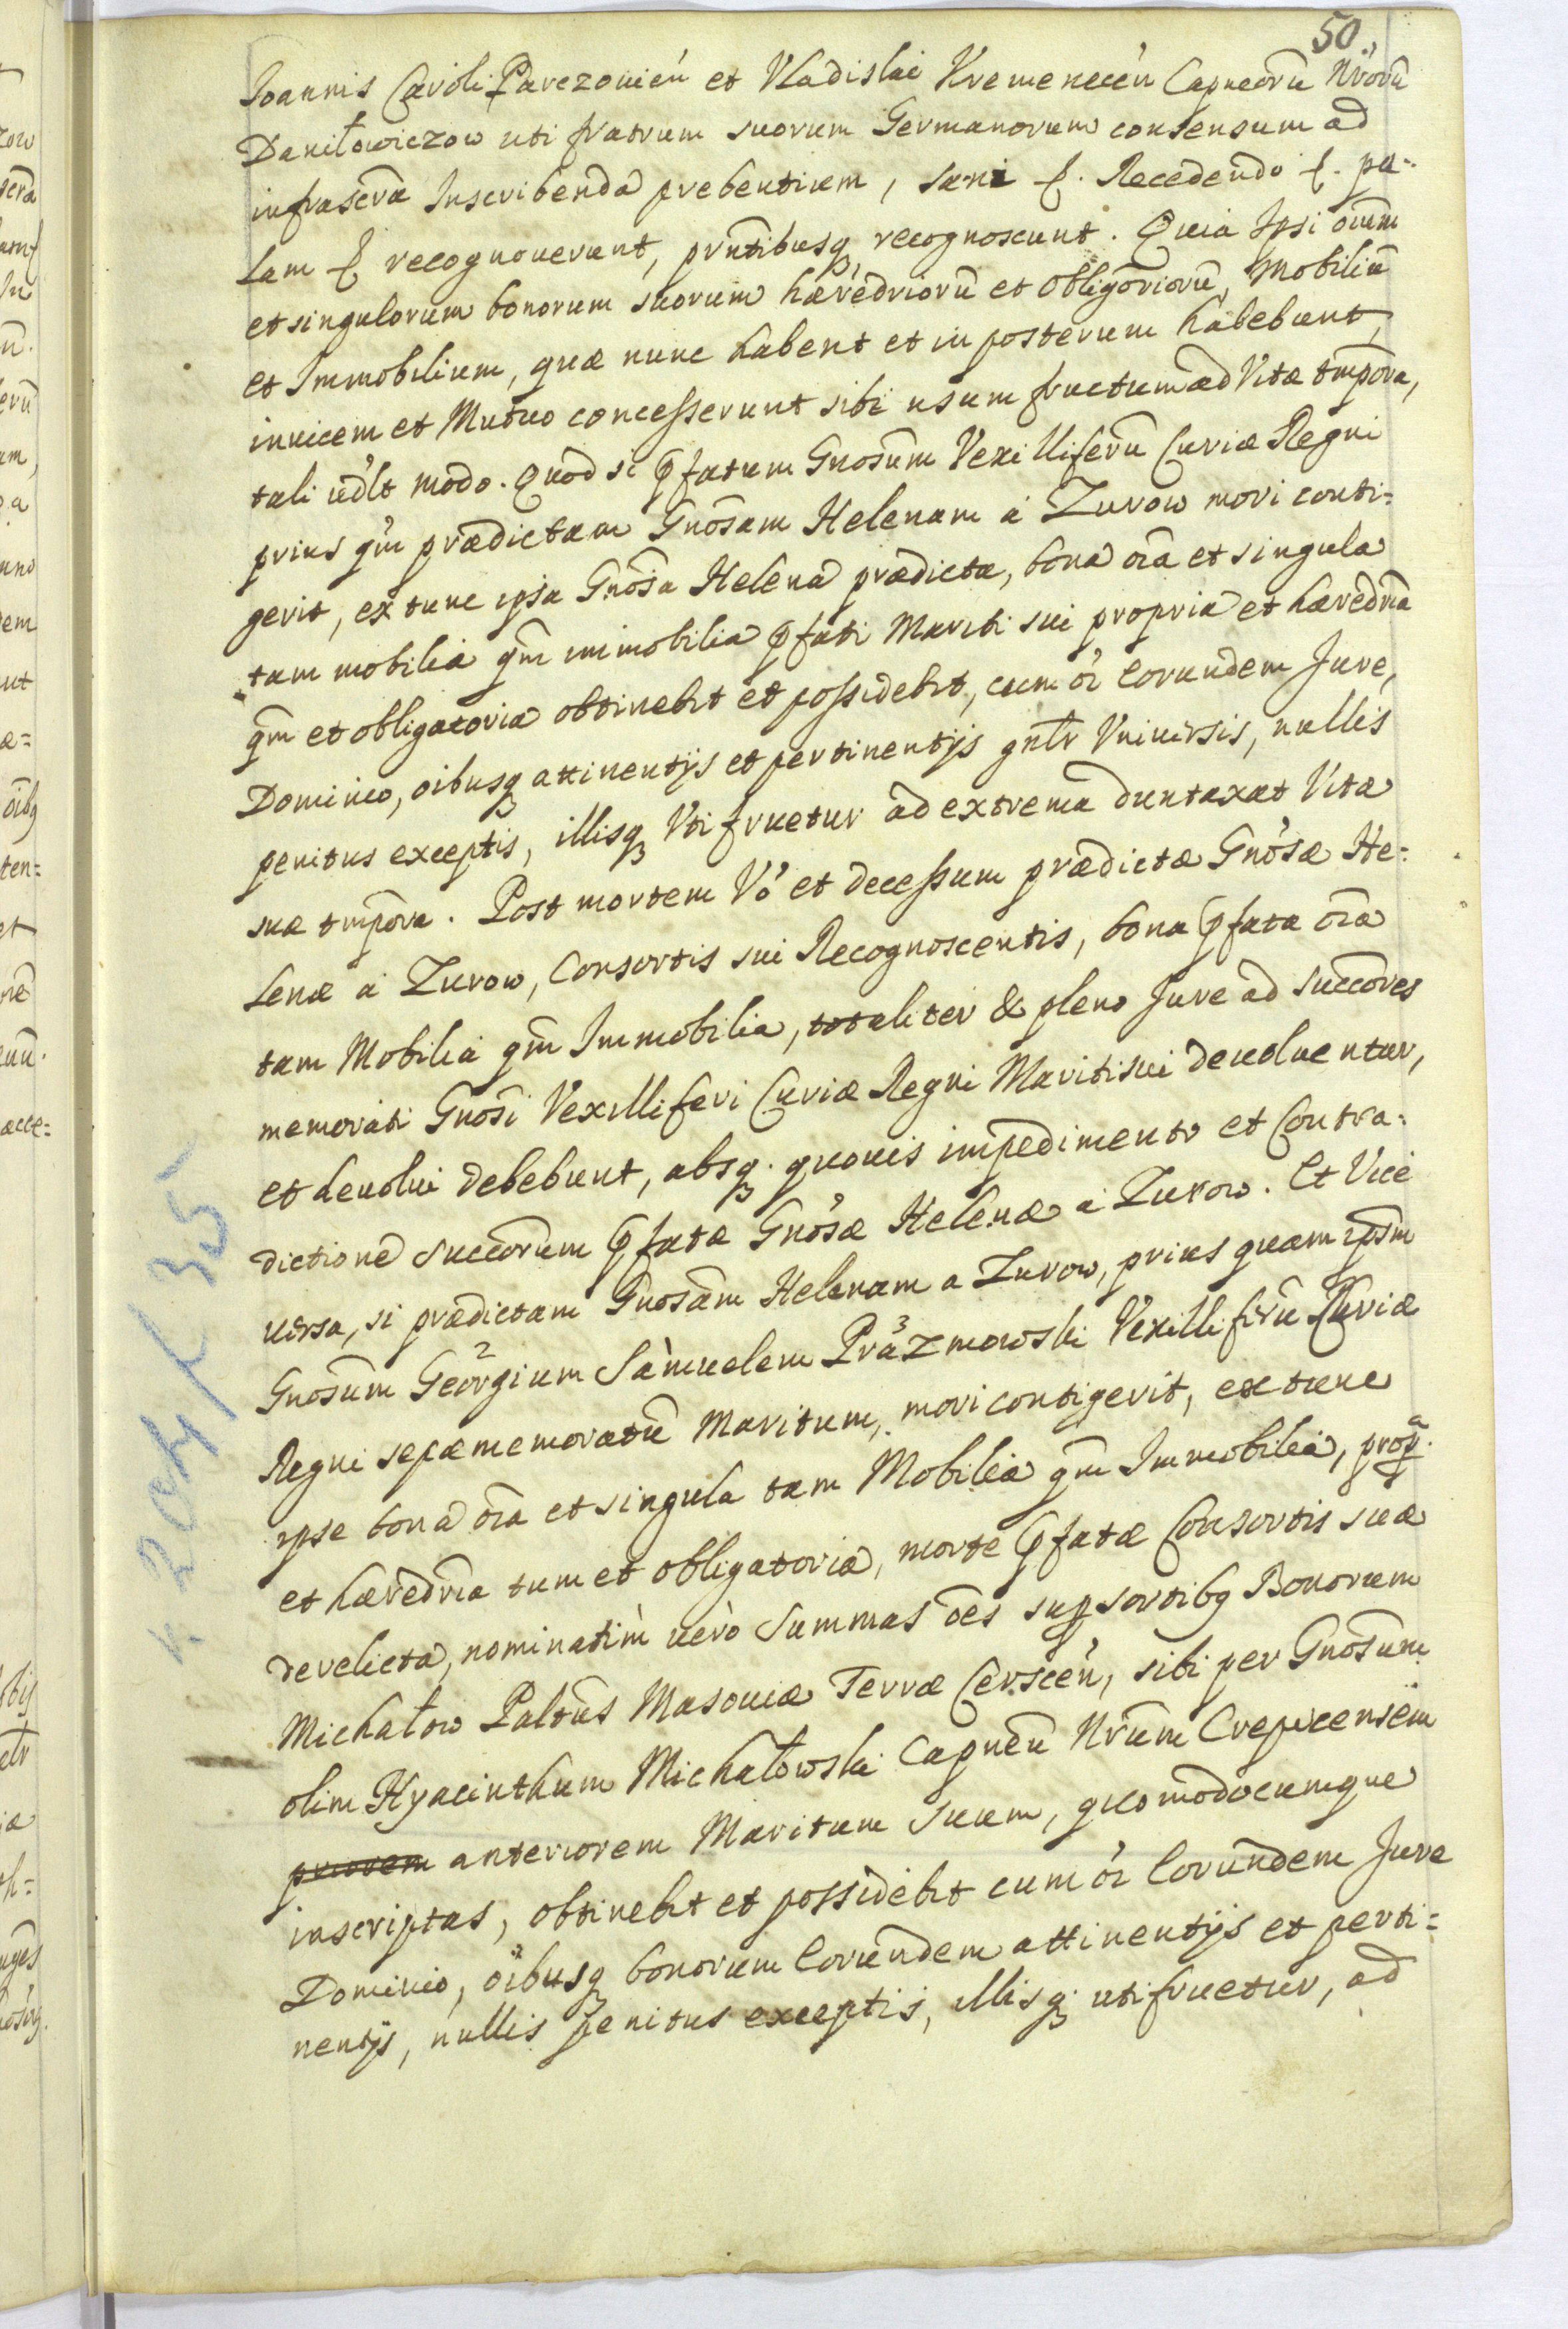 50.
Joannis Caroli Parczovień et Vladislai Kremeneceń Capneorū Nrorū
Daniłowiczow uti fratrum suorum Germanorum consensum ad
infrascra Inscribenda prebentium, sani &. Recedendo &. pa=
lam & recognoverunt, prntibusq, recognoscunt. Quia Ipsi oium
et singulorum bonorum suorum hæredriorū et obligoriorū, Mobiliū
et Immobilium, quæ nunc habent et in posterum habebunt,
invicem et Mutuo concesserunt sibi usum fructum ad Vitæ tmpora,
tali vdlt modo. Quod si pfatum Gnosum Vexilliferū Curiæ Regni
prius qm prædictam Gnosam Helenam a Zurow mori conti=
gerit, ex tunc ipsa Gnosa Helena prædicta, bona oia et singula
tam mobilia qm immobilia pfati Mariti sui propria et hæredria
qm et obligatoria obtinebit et possidebit, cum oi eorundem Jure,
Dominio, oibusq attinentijs et pertinentijs gnlr Vniversis, nullis
penitus exceptis, illisq Vti fruetur ad extrema duntaxat Vitæ
suæ tmpora. Post mortem Vo et decessum prædictæ Gnosæ He=
lenæ a Zurow, Consortis sui Recognoscentis, bona pfata oia
tam Mobilia qm Immobilia, totaliter & pleno Jure ad succores
memorati Gnosi Vexilliferi Curiæ Regni Mariti sui devolventur,
et devolvi debebunt, absq. quovis impedimento et Contra=
dictione succorum pfatæ Gnosæ Helenæ a Zurow. Et Vice
versa, si prædictam Gnosam Helenam a Zurow, prius quam ipsm
Gnosum Georgium 2 Samuelem Prażmowski 3 Vexilliferū Curiæ
Regni sepæmemoratū Maritum, mori contigerit, ex tunc
ipse bona oia et singula tam Mobilia qm Immobilia, propa.
et hæredria tum et obligatoria, morte pfatæ Consortis suæ
derelicta, nominatim vero Summas oes sup sortibq Bonorum
Michałow Paltus Masoviæ Terræ Cersceń, sibi per Gnosum
olim Hyacinthum Michałowski Capneū Nrum Crepicensem
priorem anteriorem Maritum Suum, quomodocumque
inscriptas, obtinebit et possidebit cum oi Eorundem Jure
Dominio, oibusq bonorum Eorundem attinentijs et perti=
nentijs, nullis penitus exceptis, illisq utifruetur, ad